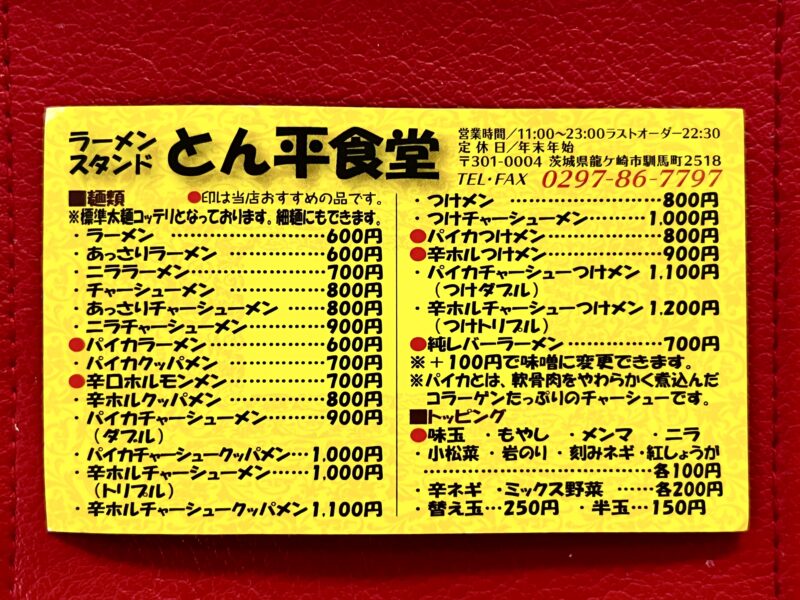 ラーメン
スタンド
とん平食堂
営業時間/11:00〜23:00ラストオーダー22:30
定休日/年末年始
〒301-0004 茨城県龍ケ崎市馴馬町2518
TEL・FAX 0297-86-7797
■麺類 ●印は当店おすすめの品です。
※標準太麺コッテリとなっております。細麺にもできます。
・ラーメン…………………600円
・あっさりラーメン…………600円
・ニララーメン………………700円
・チャーシューメン…………800円
・あっさりチャーシューメン…800円
・ニラチャーシューメン………900円
●パイカラーメン……………600円
・パイカクッパメン…………700円
●辛口ホルモンメン…………700円
・辛ホルクッパメン…………800円
・パイカチャーシューメン……900円
(ダブル)
・パイカチャーシュークッパメン…1,000円
・辛ホルチャーシューメン……1,000円
(トリプル)
・辛ホルチャーシュークッパメン 1,100円
・つけメン……………………800円
・つけチャーシューメン………1,000円
●パイカつけメン……………800円
●辛ホルつけメン……………900円
・パイカチャーシューつけメン 1,100円
(つけダブル)
・辛ホルチャーシューつけメン 1,200円
(つけトリプル)
●純レバーラーメン…………700円
※+100円で味噌に変更できます。
※パイカとは、軟骨肉をやわらかく煮込んだ
コラーゲンたっぷりのチャーシューです。
■トッピング
●味玉 ・もやし ・メンマ ・ニラ
・小松菜 ・岩のり ・刻みネギ ・紅しょうが
……………………………各100円
・辛ネギ ・ミックス野菜 ……各200円
・替え玉…250円 ・半玉…150円